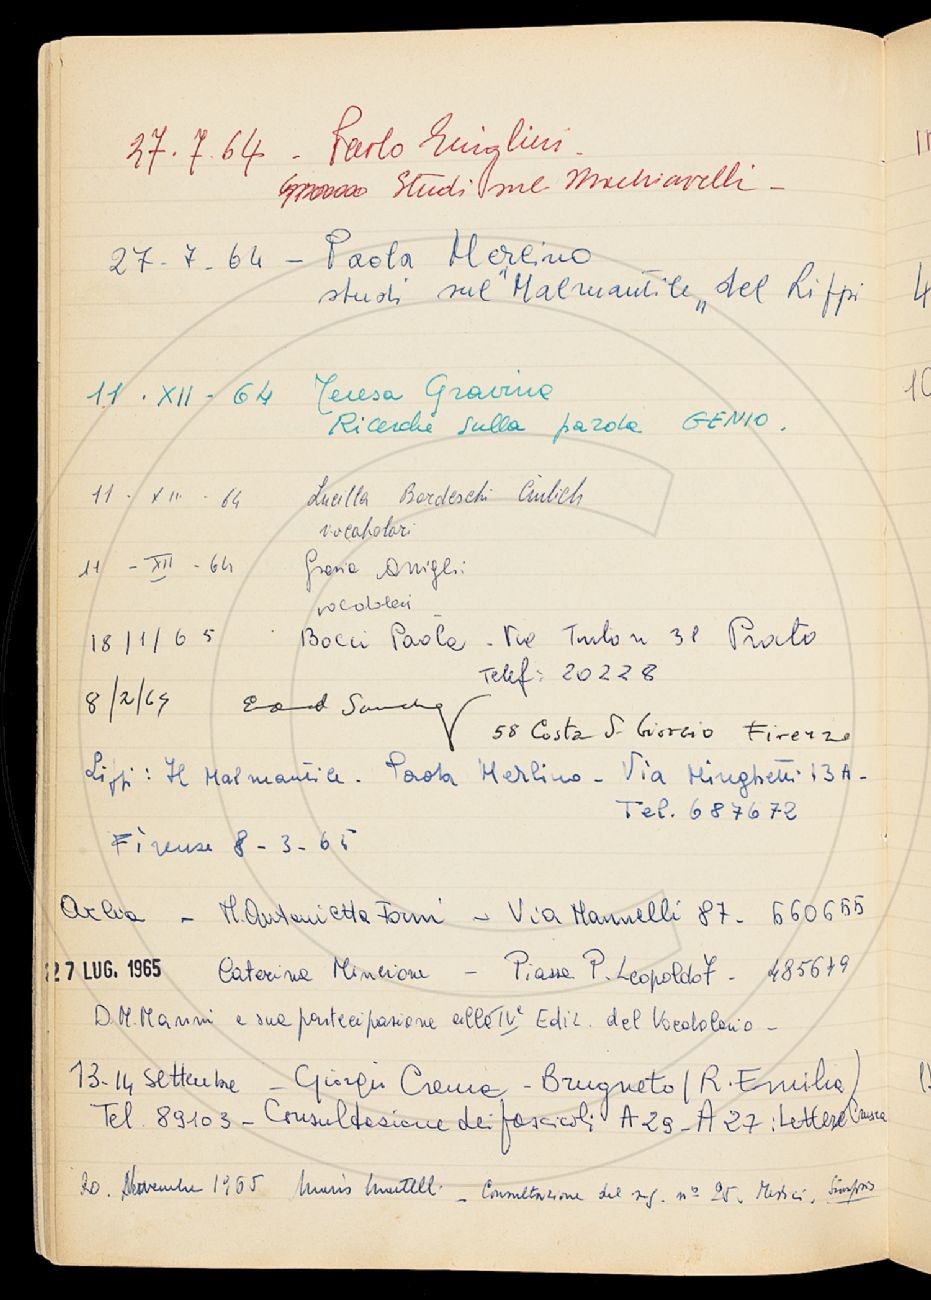 27.7.64 - Paolo
Studi sul Machiavelli -
27-7-64 - Paola Merlino
studi sul "Malmantile" del Lippi
11.XII-64 Teresa Gravina
Ricerche sulla parola GENIO.
11-XII-64 Lucilla Bardeschi Ciulich
vocabolari
11-XII-64 Grazia
vocabolari
18/1/65 Bocci Paola - Via 31 Prato
Telef: 20228
8/2/65
58 Costa S. Giorgio Firenze
Lippi: Il Malmantile. Paola Merlino - Via Minghetti 13A-
Tel. 687672
Firenze 8-3-65
M. Antonietta Forni - Via Mannelli 87- 660655
27 LUG. 1965 Caterina Mincione - Piazza P. Leopoldo 7- 485619
D.M. Manni e sua partecipazione alla IVª Ediz. del Vocabolario -
13-14 Settembre - Giorgio Crema - Brugneto (R. Emilia)
Tel. 89103 - Consultazione dei fascicoli A 29 - A 27: Lettere Crusca
20. Novembre 1965 Mario Martelli - Consultazione del nº 25.